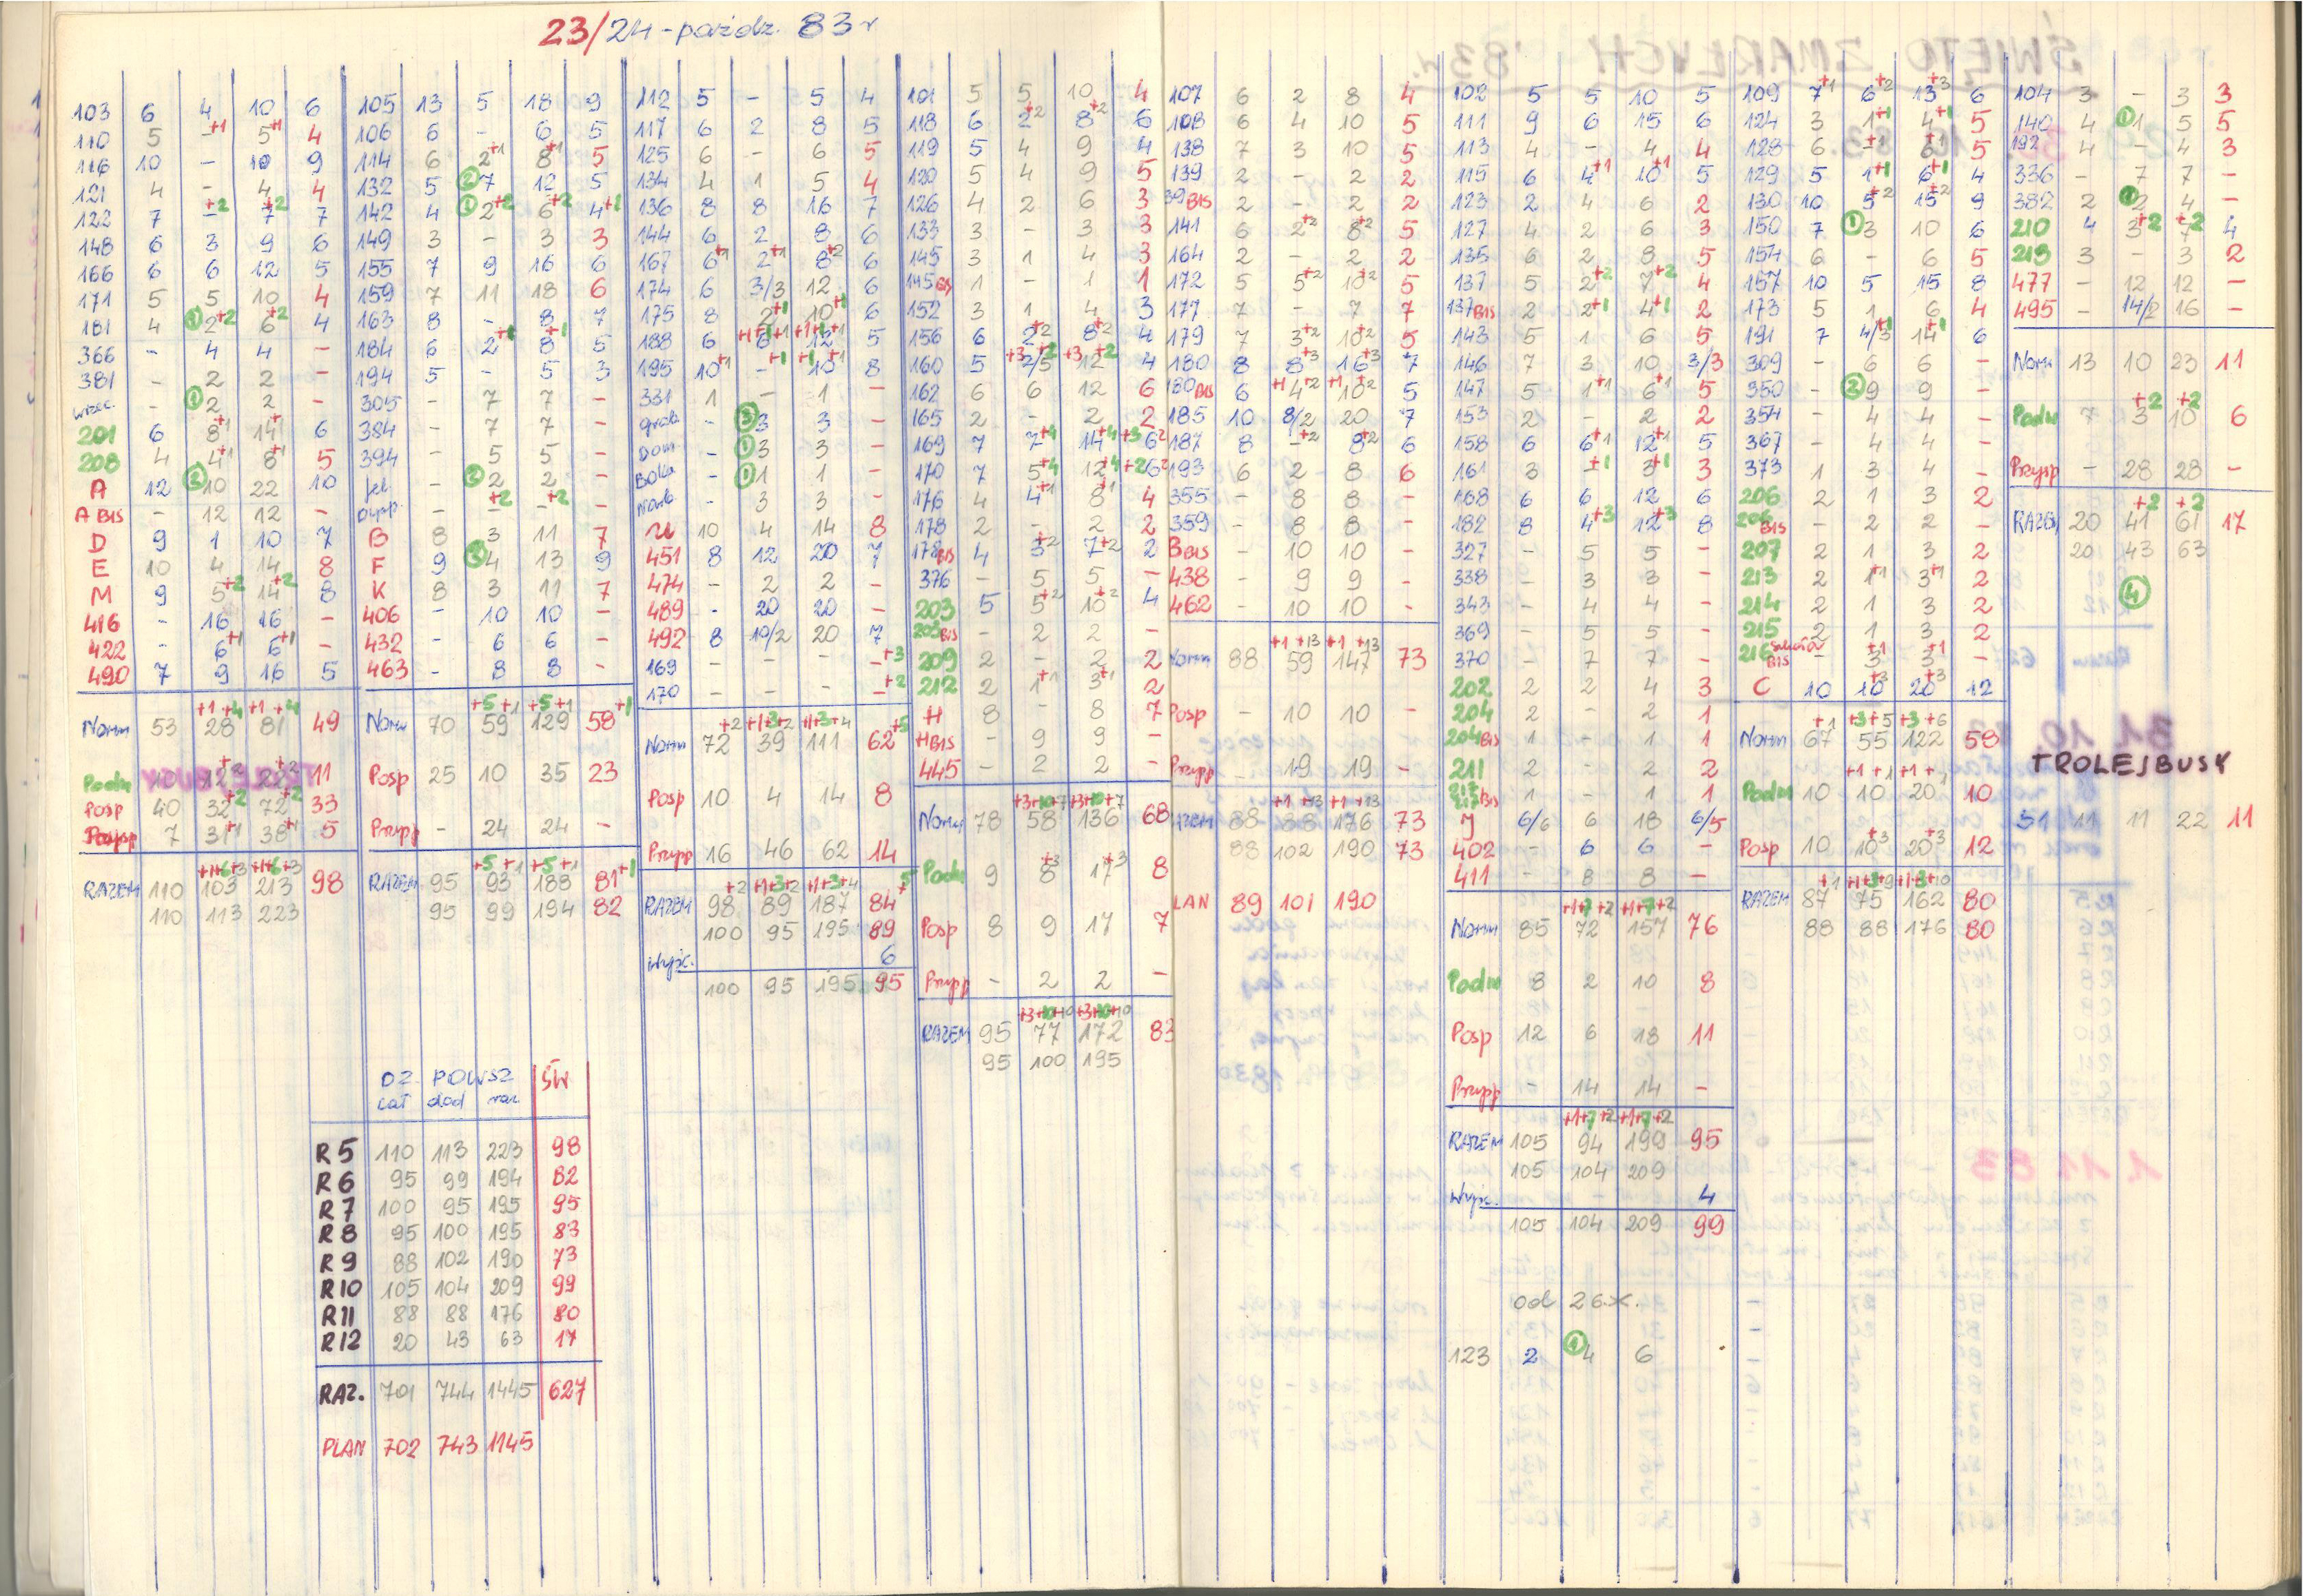 23/24 - paźdz. 83 r
103 6 4 10 6
110 5 -+1 5+1 4
116 10 - 10 9
121 4 - 4 4
122 7 -+2 7+2 7
148 6 3 9 6
166 6 6 12 5
171 5 5 10 4
181 4 ① 2+2 6+2 4
366 - 4 4 -
381 - 2 2 -
- ① 2 2 -
201 6 8+1 14+1 6
208 4 4+1 8+1 5
A 12 10 22 10
A BIS - 12 12 -
D 9 1 10 7
E 10 4 14 8
M 9 5+2 14+2 8
416 - 16 16 -
422 - 6+1 6+1 -
490 7 9 16 5
Norm 53 28 81 49
+1 +4 +1 +4
Posp 40 32+2 72+2 33
Przysp 7 31+1 38+1 5
RAZEM 110 103 213 98
110 113 223
105 13 5 18 9
106 6 - 6 5
114 6 2+1 8+1 5
132 5 ② 7 12 5
142 4 ① 2+2 6+2 4+1
149 3 - 3 3
155 7 9 16 6
159 7 11 18 6
163 8 - 8 7
184 6 2+1 8+1 5
194 5 - 5 3
305 - 7 7 -
384 - 7 7 -
394 - 5 5 -
② 2 2 -
dysp. - -+2 -+2 -
B 8 3 11 7
F 9 4 13 9
K 8 3 11 7
406 - 10 10 -
432 - 6 6 -
463 - 8 8 -
+5 +1 +5 +1
Norm 70 59 129 58+1
Posp 25 10 35 23
Przysp - 24 24 -
+5 +1 +5 +1
RAZEM 95 93 188 81+1
95 99 194 82
112 5 - 5 4
117 6 2 8 5
125 6 - 6 5
134 4 1 5 4
136 8 8 16 7
144 6 2 8 6
167 6+1 2+1 8+2 6
174 6 3/3 12 6
175 8 2+1 10+1
188 6 6 12 5
195 10+1 -+1 10+1 8
331 1 - 1 -
grab. - ③ 3 3 -
Dom - ① 3 3 -
- ① 1 1 -
- 3 3 -
U 10 4 14 8
451 8 12 20 7
474 - 2 2 -
489 - 20 20 -
492 8 10/2 20 7
169 - - - -+3
170 - - - -+2
+2 +1+3+2 +1+3+4
Norm 72 39 111 62+5
Posp 10 4 14 8
Przysp 16 46 62 14
+2 +1+3+2 +1+3+4
RAZEM 98 89 187 84+5
100 95 195 89
wyjc. 6
100 95 195 95
101 5 5 10 4
118 6 2+2 8+2 6
119 5 4 9 4
120 5 4 9 5
126 4 2 6 3
133 3 - 3 3
145 3 1 4 3
145 BIS 1 - 1 1
152 3 1 4 3
156 6 2+2 8+2 4
160 5 2/5 12 4
162 6 6 12 6
165 2 - 2 2
169 7 7+4 14+4+3 6
170 7 5+4 12+4+2 6
176 4 4+1 8+1 4
178 2 - 2 2
178 BIS 4 3+2 7+2 2
376 - 5 5 -
203 5 5+2 10+2 4
203 BIS - 2 2 -
209 2 - 2 2
212 2 1+1 3+1 2
H 8 - 8 7
H BIS - 9 9 -
445 - 2 2 -
+3+10+7 +3+10+7
Norm 78 58 136 68
Podm 9 8+3 17+3 8
Posp 8 9 17 7
Przysp - 2 2 -
+3+10+10 +3+10+10
RAZEM 95 77 172 83
95 100 195
107 6 2 8 4
108 6 4 10 5
138 7 3 10 5
139 2 - 2 2
39 BIS 2 - 2 2
141 6 2+2 8+2 5
164 2 - 2 2
172 5 5+2 10+2 5
177 7 - 7 7
179 7 3+2 10+2 5
180 8 8+3 16+3 7
180 BIS 6 +1 4+2 +1 10+2 5
185 10 8/2 20 7
187 8 -+2 8+2 6
193 6 2 8 6
355 - 8 8 -
359 - 8 8 -
B BIS - 10 10 -
438 - 9 9 -
462 - 10 10 -
+1 +13 +1 +13
Norm 88 59 147 73
Posp - 10 10 -
Przysp - 19 19 -
+1 +13 +1 +13
RAZEM 88 88 176 73
88 102 190 73
LAN 89 101 190
102 5 5 10 5
111 9 6 15 6
113 4 - 4 4
115 6 4+1 10+1 5
123 2 4 6 2
127 4 2 6 3
135 6 2 8 5
137 5 2+2 7+2 4
137 BIS 2 2+1 4+1 2
143 5 1 6 5
146 7 3 10 3/3
147 5 1+1 6+1 5
153 2 - 2 2
158 6 6+1 12+1 5
161 3 -+1 3+1 3
168 6 6 12 6
182 8 4+3 12+3 8
327 - 5 5 -
338 - 3 3 -
343 - 4 4 -
369 - 5 5 -
370 - 7 7 -
202 2 2 4 3
204 2 - 2 1
204 BIS 1 - 1 1
211 2 - 2 2
217 BIS 1 - 1 1
J 6/6 6 18 6/5
402 - 6 6 -
411 - 8 8 -
+1+7+2 +1+7+2
Norm 85 72 157 76
Podm 8 2 10 8
Posp 12 6 18 11
Przysp - 14 14 -
+1+7+2 +1+7+2
RAZEM 105 94 199 95
105 104 209
wyjc. 4
105 104 209 99
od 26.X.
123 2 ① 4 6
109 7+1 6+2 13+3 6
124 3 1+1 4+1 5
128 6 -+1 6+1 5
129 5 1+1 6+1 4
130 10 5+2 15+2 9
150 7 ① 3 10 6
154 6 - 6 5
157 10 5 15 8
173 5 1 6 4
191 7 4/3+1 14+1 6
309 - 6 6 -
350 - ② 9 9 -
354 - 4 4 -
367 - 4 4 -
373 1 3 4 -
206 2 1 3 2
206 BIS - 2 2 -
207 2 1 3 2
213 2 1+1 3+1 2
214 2 1 3 2
215 2 1 3 2
216 BIS - 3+1 3+1 -
C 10 10+3 20+3 12
+1 +3+5 +3+6
Norm 67 55 122 58
Podm 10 10 20 10
Posp 10 10+3 20+3 12
RAZEM 87 75 162 80
88 88 176 80
104 3 - 3 3
140 4 ① 1 5 5
192 4 - 4 3
336 - 7 7 -
382 2 2 4 -
210 4 3+2 7+2 4
218 3 - 3 2
477 - 12 12 -
495 - 14/2 16 -
Norm 13 10 23 11
Podm 7 3+2 10+2 6
Przysp - 28 28 -
+2 +2
RAZEM 20 41 61 17
20 43 63
④
TROLEJBUSY
51 11 11 22 11
DZ. POWSZ ŚW
cał dod raz.
R5 110 113 223 98
R6 95 99 194 82
R7 100 95 195 95
R8 95 100 195 83
R9 88 102 190 73
R10 105 104 209 99
R11 88 88 176 80
R12 20 43 63 17
RAZ. 701 744 1445 627
PLAN 702 743 1145